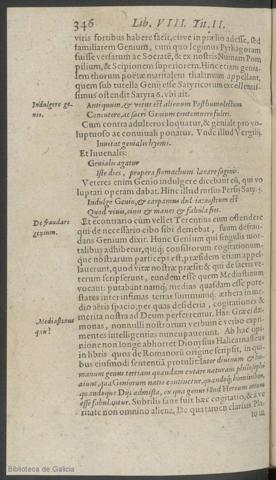 346 Lib. VIII. Tit. II.
vitis fortibus habere facit, cive in prælio adesse, sed
familiarem Genium, cum quo legimus Pythagoram
fuisse versatum ac Socratē, & ex nostris Numam Pom
pilium, & Scipionem superiorem. Hinc etiam genia-
lem thorum poëtæ maritalem thalamum appellant,
quem sub tutela Genij esse Satyricorum excellentis-
simus ostendit Satyra 6. vbi ait.
Indulgere ge-
nio.
Antiquum, & vetus est alienum Posthume lectum
Concutere, ac sacri Genium contemnere fulcri.
Cum contra adulteros loquatur, & geniale pro vo-
luptuoso ac connuiali ponatur. Vnde illud Vergilij.
Inuitat genialis hyems.
Et Iuuenalis:
Genialis agatur
Iste dies, propera stomachum laxare sagina.
Veteres enim Genio indulgere dicebant eū, qui vo
luptati operam dabat. Hinc illud rursus Persij Saty. 5.
Indulge Genio, & carpamus dulcia nostrum est
Quod viuis, cinis & manes & fabula fies.
De fraudare
genium.
Et econtrario cum vellet Terentius eum ostendere
qui de necessario cibo sibi demebat, suum defrau-
dans Genium dixit. Hunc Genium qui singulis mor-
talibus adhibetur,
que nostrarum particeps est, præsidem etiam appel-
lauerunt, quod vitæ nostræ præesset & qui de sacris ve-
terum scripserunt, eundem esse quem Mediastinum
vocant: putabant namq; medias quasdam esse pote-
states inter infimas terræ summumq; æthera in me-
dio aëris spacio, per quas desideria, cogitationes &
merita nostra ad Deum perferrentur. Has Græci dæ-
Mediastinus
quis?
monas, nonnulli nostrorum verbum è verbo expri-
mentes intelligentias nuncupauerunt. Ab hac opi-
nione non longe abhorret Dionysius Halicarnaseus
in libris quos de Romanorū origine scripsit, in qui-
bus eiusmodi sententiā protulit: Inter diuinam & hu-
manum genus tertiam quandam extare naturam philosophi
aiunt, quæ Geniorum natio continetur, quandoq; hominibus,
quandoque Dijs admista, ex qua genus illud Heroum ortum
esse fabulantur. Subtilis sane fuit hæc cogitatio, & à ve
ritate non omnino aliena. De qua tamen clarius Pla
to in
Biblioteca de Galicia